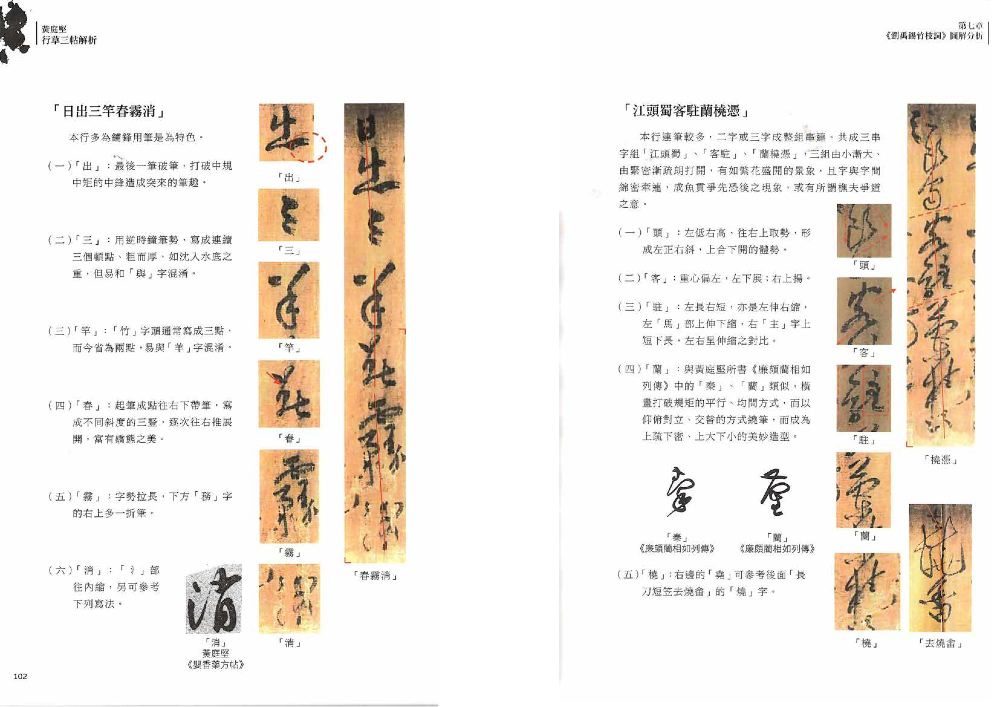 黃庭堅
行草三帖解析
「日出三竿春霧消」
本行多為繞鋒用筆是為特色。
(一)「出」:最後一筆破筆,打破中規
中矩的中鋒造成突來的筆趣。
「出」
(二)「三」:用逆時鐘筆勢,寫成連續
三個頓點、粗而厚,如沈入水底之
重,但易和「與」字混淆。
「三」
(三)「竿」:「竹」字頭通常寫成三點,
而今省為兩點,易與「羊」字混淆。
「竿」
(四)「春」:起筆成點往右下帶筆,寫
成不同斜度的三疊,逐次往右推展
開,富有嬌態之美。
「春」
(五)「霧」:字勢拉長,下方「務」字
的右上多一折筆。
「霧」
(六)「消」:「氵」部
往內縮,另可參考
下列寫法。
「消」
黃庭堅
《嬰香藥方帖》
「消」
「春霧消」
102
第七章
《劉禹錫竹枝詞》圖解分析
「江頭蜀客駐蘭橈憑」
本行連筆較多,二字或三字成幣組串連。共成三串
字組「江頭蜀」、「客駐」、「蘭橈憑」,三組由小漸大、
由緊密漸疏朗打開,有如繁花盛開的景象,且字與字間
綿密牽連,成魚貫爭先恐後之現象,或有所謂樵夫爭道
之意。
(一)「頭」:左低右高、往右上取勢,形
成左正右斜,上合下開的體勢。
「頭」
(二)「客」:重心偏左,左下展;右上揚。
「客」
(三)「駐」:左長右短,亦是左伸右縮,
左「馬」部上伸下縮,右「主」字上
短下長,左右呈伸縮之對比。
「駐」
(四)「蘭」:與黃庭堅所書《廉頗藺相如
列傳》中的「秦」、「藺」類似,橫
畫打破規矩的平行、均間方式,而以
仰俯對立、交替的方式繞筆,而成為
上疏下密,上大下小的美妙造型。
「秦」
《廉頗藺相如列傳》
「藺」
《廉頗藺相如列傳》
「蘭」
(五)「橈」:右邊的「堯」可參考後面「長
刀短笠去燒畬」的「燒」字。
「橈」
「橈憑」
「去燒畬」